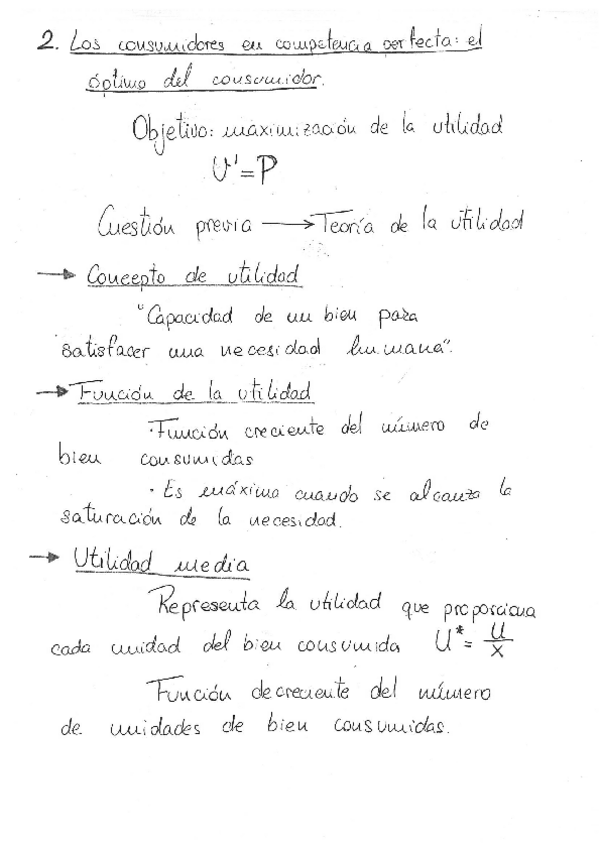 2. Los consumidores en competencia perfecta: el
óptimo del consumidor.
Objetivo: maximización de la utilidad
U'=P
Cuestión previa → Teoría de la utilidad
→ Concepto de utilidad
"Capacidad de un bien para
satisfacer una necesidad humana".
→ Función de la utilidad
·Función creciente del número de
bien consumidas
· Es máxima cuando se alcanza la
saturación de la necesidad.
→ Utilidad media
Representa la utilidad que proporciona
cada unidad del bien consumida U* = U/X
Función decreciente del número
de unidades de bien consumidas.